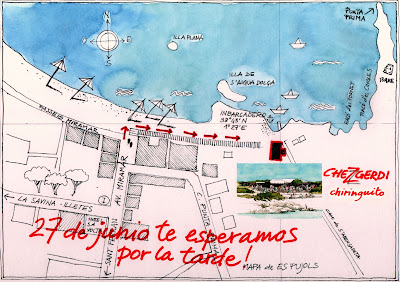 PUNTA
PRIMA
ILLA PLANA
ILLA DE
S'AIGUA DOLÇA
INBARCADERO
38°43'N
1°27'E
FARE
PASEO MIRAMAR
AV. MIRAMAR
C. PUNTA PRIMA
CHEZ GERDI
chiringuito
← LA SAVINA - ILLETES
SANT FERRAN
27 de junio te esperamos
por la tarde!
MAPA DE ES PUJOLS